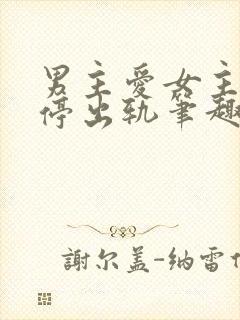 男主愛女主
停出轨笔趣
謝尔盖-纳雷